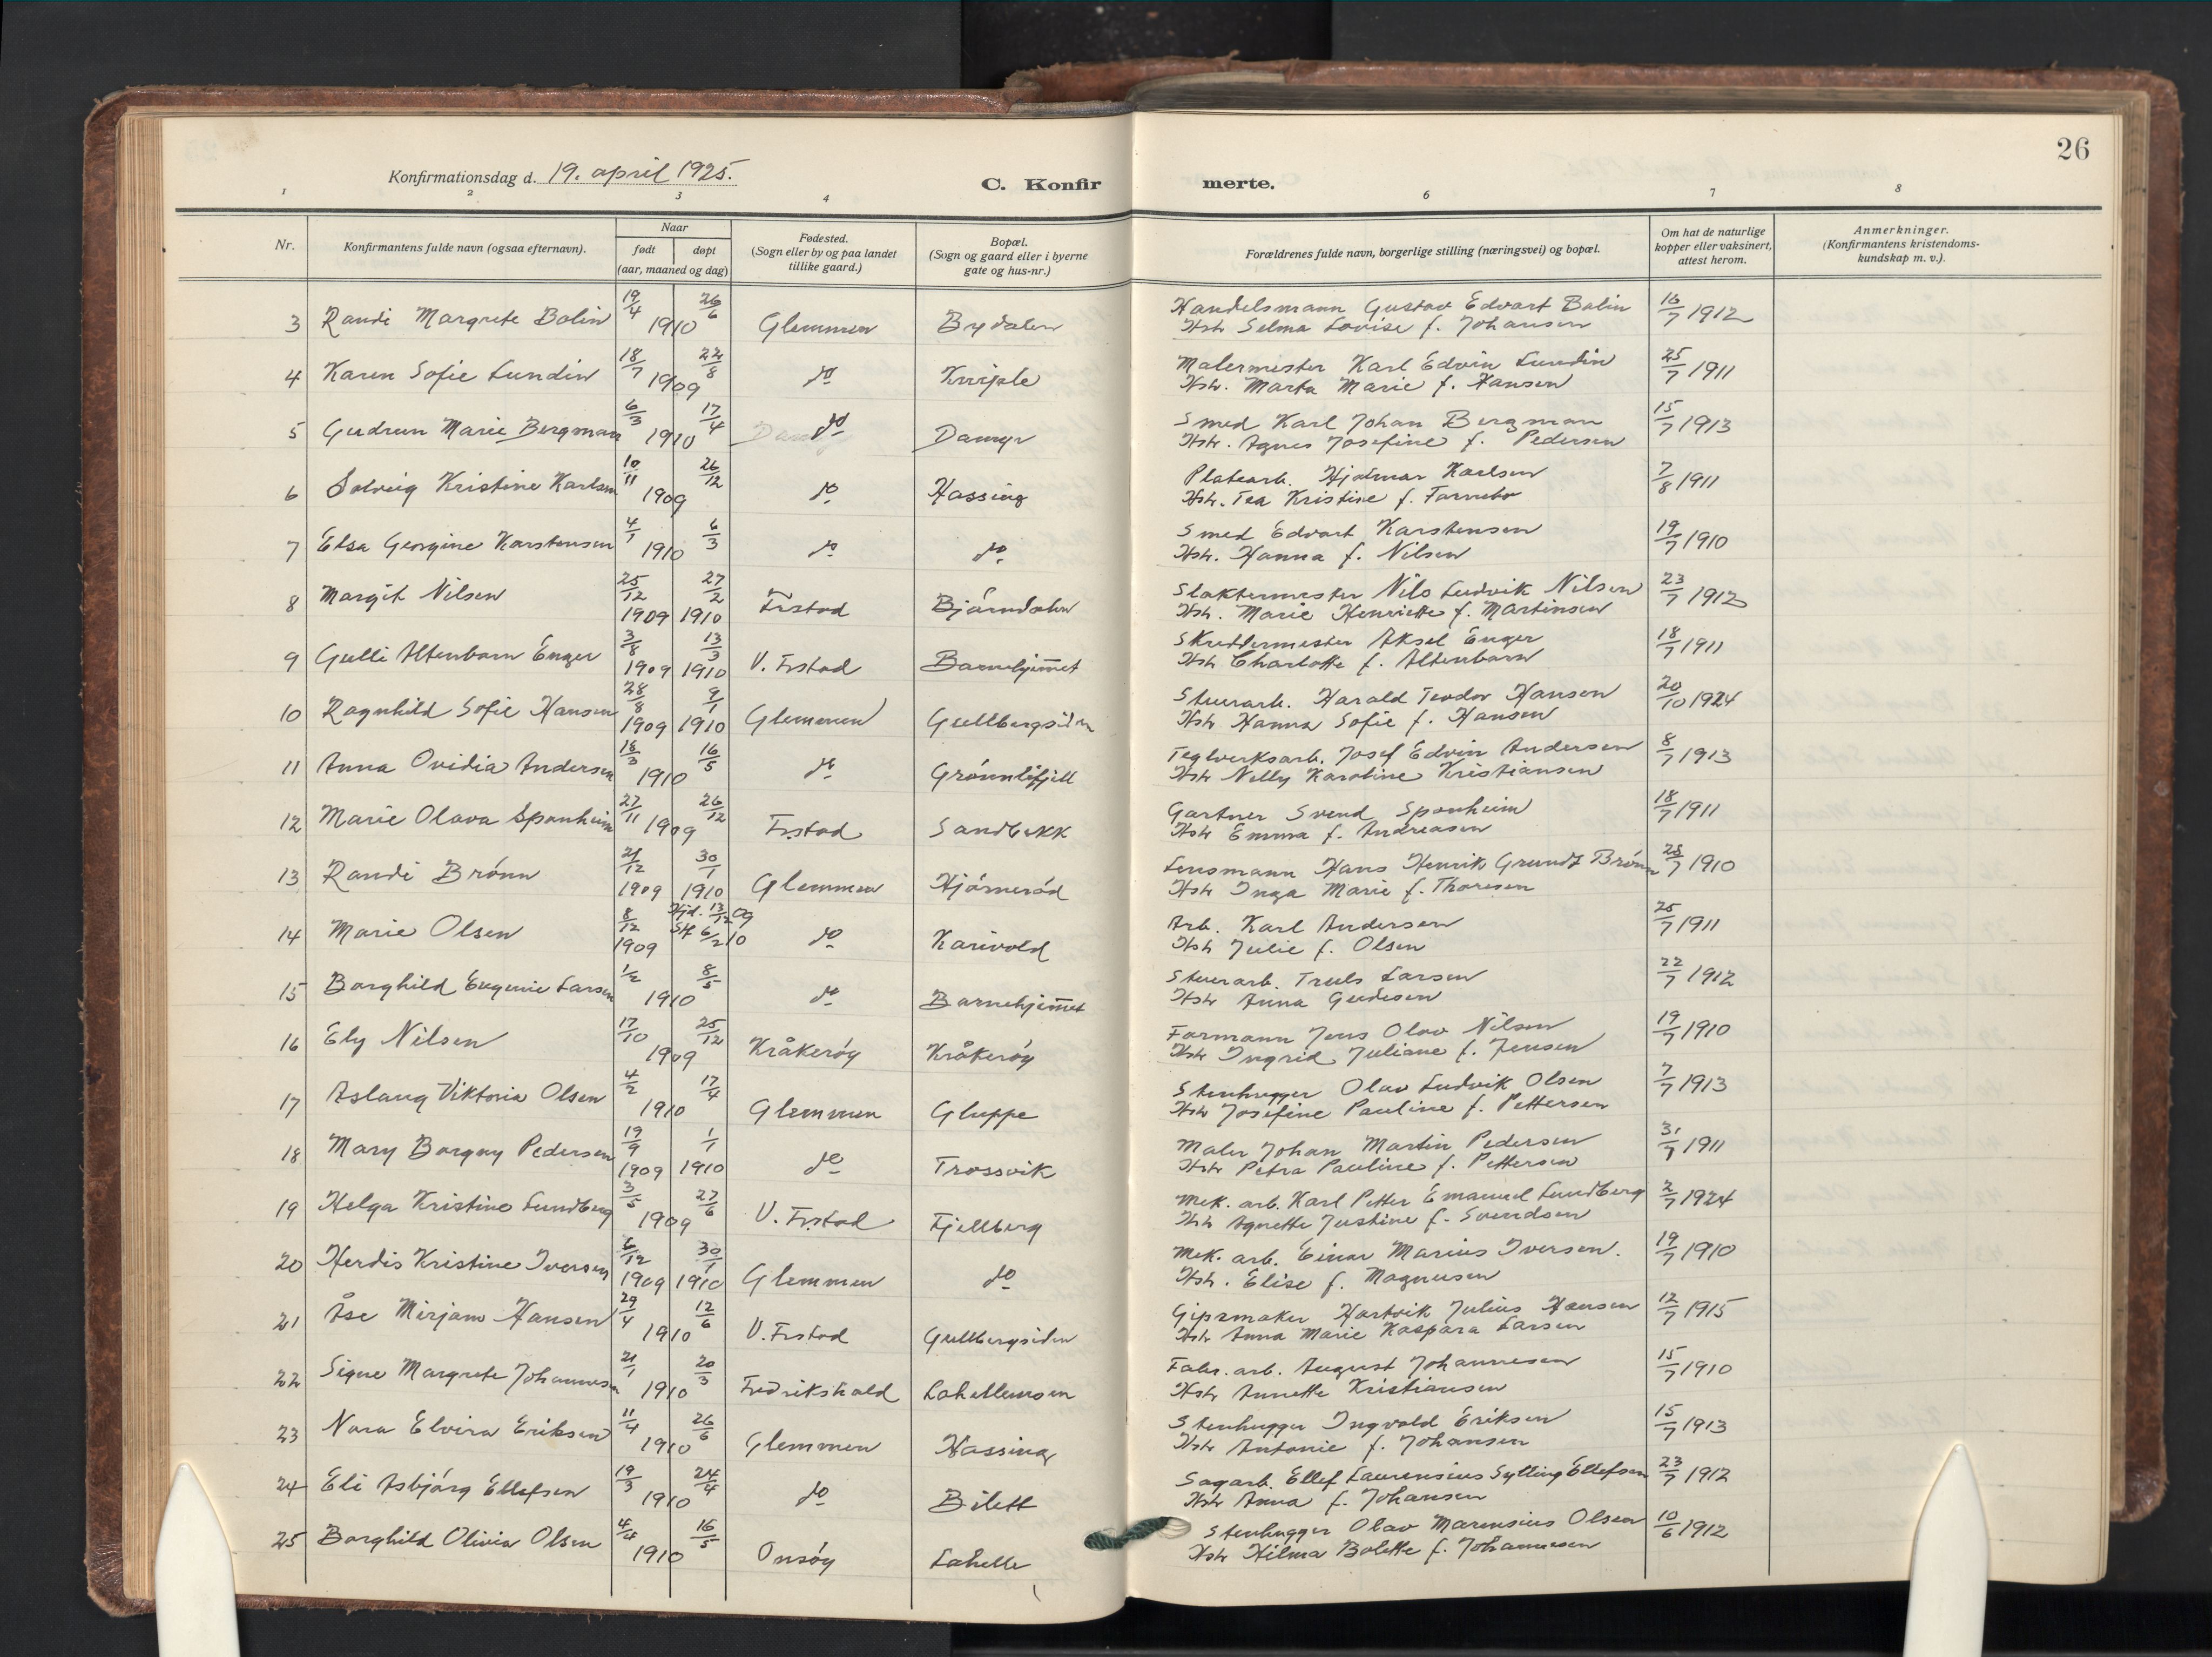 26
Konfirmationsdag d. 19. april 1925.
C. Konfirmerte.
1 2 3 4 6 7 8
Nr. Konfirmantens fulde navn (ogsaa efternavn). Naar født døpt (aar, maaned og dag) Fødested. (Sogn eller by og paa landet tillike gaard.) Bopæl. (Sogn og gaard eller i byerne gate og hus-nr.) Forældrenes fulde navn, borgerlige stilling (næringsvei) og bopæl. Om hat de naturlige kopper eller vaksinert, attest herom. Anmerkninger. (Konfirmantens kristendoms-kundskap m. v.).
3 Randi Margrete Bolin 19/4 26/6 1910 Glemmen Bydalen Handelsmann Gustav Edvart Bolin 16/7 1912
Hstr Selma Lovise f. Johansen
4 Karen Sofie Lundin 18/7 22/8 1909 do Kniple Malermester Karl Edvin Lundin 25/7 1911
Hstr. Marta Marie f. Hansen
5 Gudrun Marie Bergman 6/3 17/4 1910 do Damyr Smed Karl Johan Bergman 15/7 1913
Hstr. Agnes Josefine f. Pedersen
6 Solveig Kristine Karlsen 10/11 26/12 1909 do Hassing Platearb. Hjalmar Karlsen 7/8 1911
Hstr. Tea Kristine f. Farnebo
7 Elsa Georgine Karstensen 4/1 6/3 1910 do do Smed Edvart Karstensen 19/7 1910
Hstr. Hanna f. Nilsen
8 Margit Nilsen 25/12 1909 27/2 1910 Frstad Bjørndalen Slaktermester Nils Ludvik Nilsen 23/7 1912
Hstr. Marie Henriette f. Martinsen
9 Gulli Altenborn Enger 3/8 1909 13/3 1910 V. Frstad Barnehjemmet Skreddermester Aksel Enger 18/7 1911
Hstr Charlotte f. Altenborn
10 Ragnhild Sofie Hansen 28/8 1909 9/1 1910 Glemmen Gullbergsiden Stuerarb. Harald Teodor Hansen 20/10 1924
Hstr Hanna Sofie f. Hansen
11 Anna Ovidia Andersen 18/3 16/5 1910 do Grønnlifjell Teglverksarb. Josef Edvin Andersen 8/7 1913
Hstr Nelly Karoline Kristiansen
12 Marie Olava Sponheim 27/11 26/12 1909 Frstad Sandbekk Gartner Svend Sponheim 18/7 1911
Hstr Emma f. Andreasen
13 Randi Brønn 21/12 1909 30/1 1910 Glemmen Hjørnerød Lensmann Hans Henrik Grundt Brønn 28/7 1910
Hstr Inga Marie f. Thoresen
14 Marie Olsen 8/12 1909 Hjd. 13/12 09 Stf 6/2 10 do Karivold Arb. Karl Andersen 25/7 1911
Hstr Julie f. Olsen
15 Borghild Eugenie Larsen 1/2 8/5 1910 do Barnehjemmet Stuerarb. Truls Larsen 22/7 1912
Hstr Anna Gudesen
16 Ely Nilsen 17/10 25/12 1909 Kråkerøy Kråkerøy Formann Jens Olav Nilsen 19/7 1910
Hstr Ingrid Juliane f. Jensen
17 Aslaug Viktoria Olsen 4/2 17/4 1910 Glemmen Gluppe Stenhugger Olav Ludvik Olsen 7/7 1913
Hstr Josefine Pauline f. Pettersen
18 Mary Borgny Pedersen 19/9 1909 1/1 1910 do Trossvik Maler Johan Martin Pedersen 31/7 1911
Hstr Petra Pauline f. Pettersen
19 Helga Kristine Lundberg 3/5 27/6 1909 V. Frstad Fjellberg Mek. arb. Karl Petter Emanuel Lundberg 2/7 1924
Hstr Agnette Justine f. Svendsen
20 Herdis Kristine Iversen 6/12 1909 30/1 1910 Glemmen do Mek. arb. Einar Marius Iversen. 19/7 1910
Hstr. Elise f. Magnusen
21 Åse Mirjam Hansen 29/4 12/6 1910 V. Frstad Gullbergsiden Gipsmaker Hartvik Julius Hansen 12/7 1915
Hstr Anna Marie Kaspara Larsen
22 Signe Margrete Johannesen 21/1 20/3 1910 Fredrikshald Lahellemoen Fabr. arb. August Johannesen 15/7 1910
Hstr Annette Kristiansen
23 Nora Elvira Eriksen 11/4 26/6 1910 Glemmen Hassing Stenhugger Ingvald Eriksen 15/7 1913
Hstr Antonie f. Johansen
24 Eli Asbjørg Ellefsen 19/3 24/4 1910 do Bilett Sagarb. Ellef Laurensius Sylling Ellefsen 23/7 1912
Hstr Anna f. Johansen
25 Borghild Olivia Olsen 4/4 16/5 1910 Onsøy Lahelle Stenhugger Olav Marensius Olsen 10/6 1912
Hstr Hilma Bolette f. Johannesen